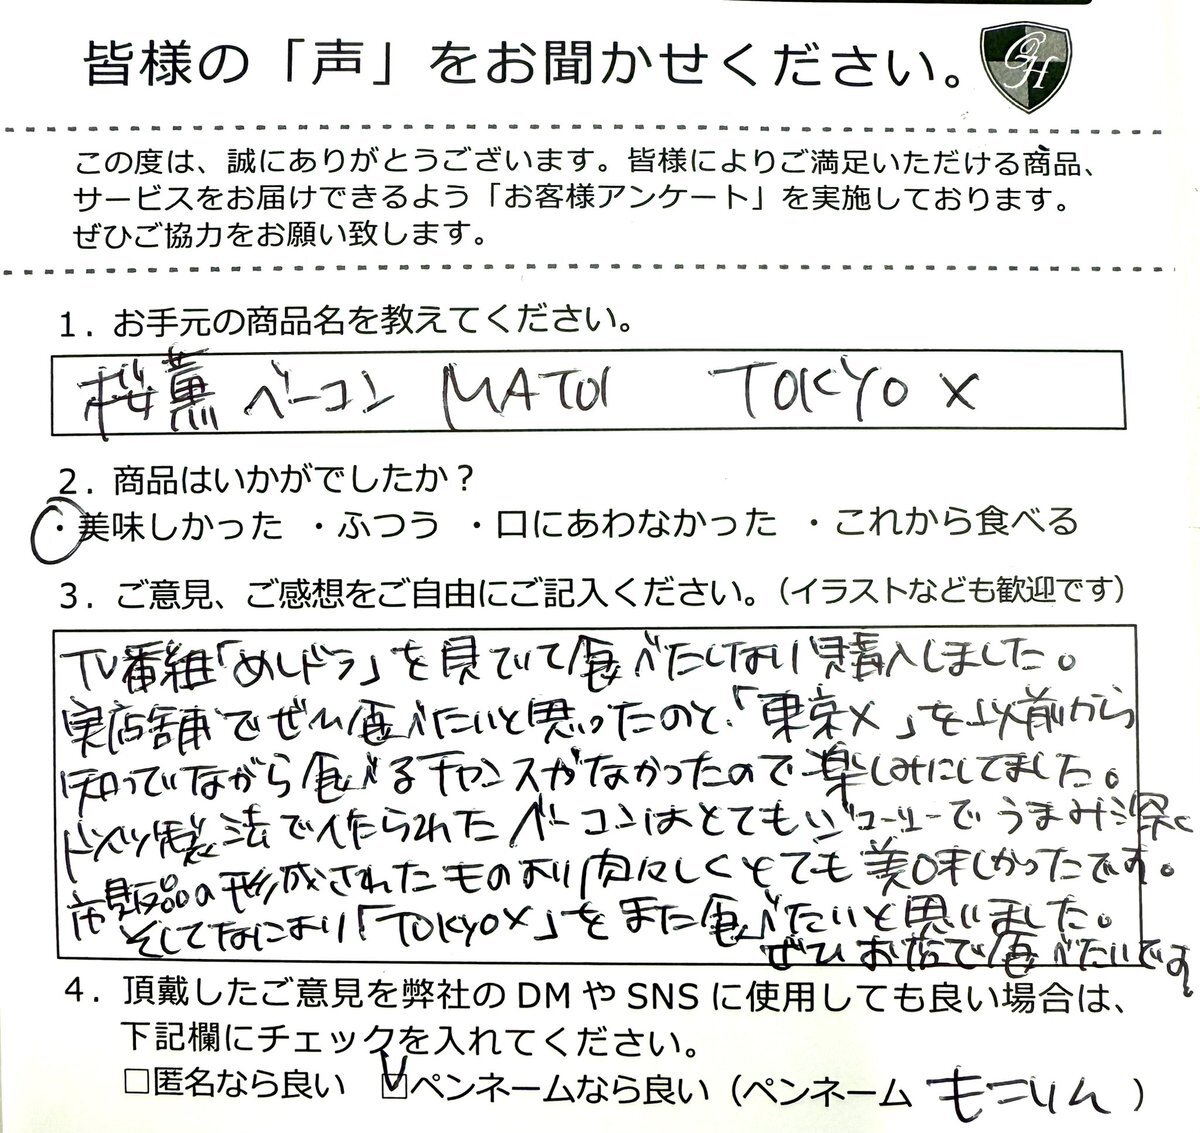 皆様の「声」をお聞かせください。
GH
この度は、誠にありがとうございます。皆様によりご満足いただける商品、
サービスをお届けできるよう「お客様アンケート」を実施しております。
ぜひご協力をお願い致します。
1. お手元の商品名を教えてください。
桜薫 ベーコン MATOI TOKYO X
2. 商品はいかがでしたか？
・美味しかった ・ふつう ・口にあわなかった ・これから食べる
3. ご意見、ご感想をご自由にご記入ください。（イラストなども歓迎です）
TV番組「めしドラ」を見ていて食べたくなり購入しました。
実店舗でぜひ食べたいと思ったのと、「東京X」を以前から
知っていながら食べるチャンスがなかったので楽しみにしてました。
ドイツ製法で作られたベーコンはとてもジューシーでうまみ深く
市販品の形成されたものより肉々しくとても美味しかったです。
そしてなにより「TOKYOX」をまた食べたいと思いました。
ぜひお店で食べたいです
4. 頂戴したご意見を弊社のDMやSNSに使用しても良い場合は、
下記欄にチェックを入れてください。
□匿名なら良い ☑ペンネームなら良い（ペンネーム もこりん ）